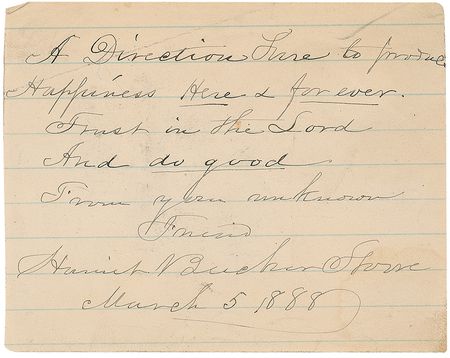 A Direction Sure to produce
Happiness Here & for ever.
Trust in the Lord
And do good
From your unknown
Friend
Harriet Beecher Stowe
March 5, 1888